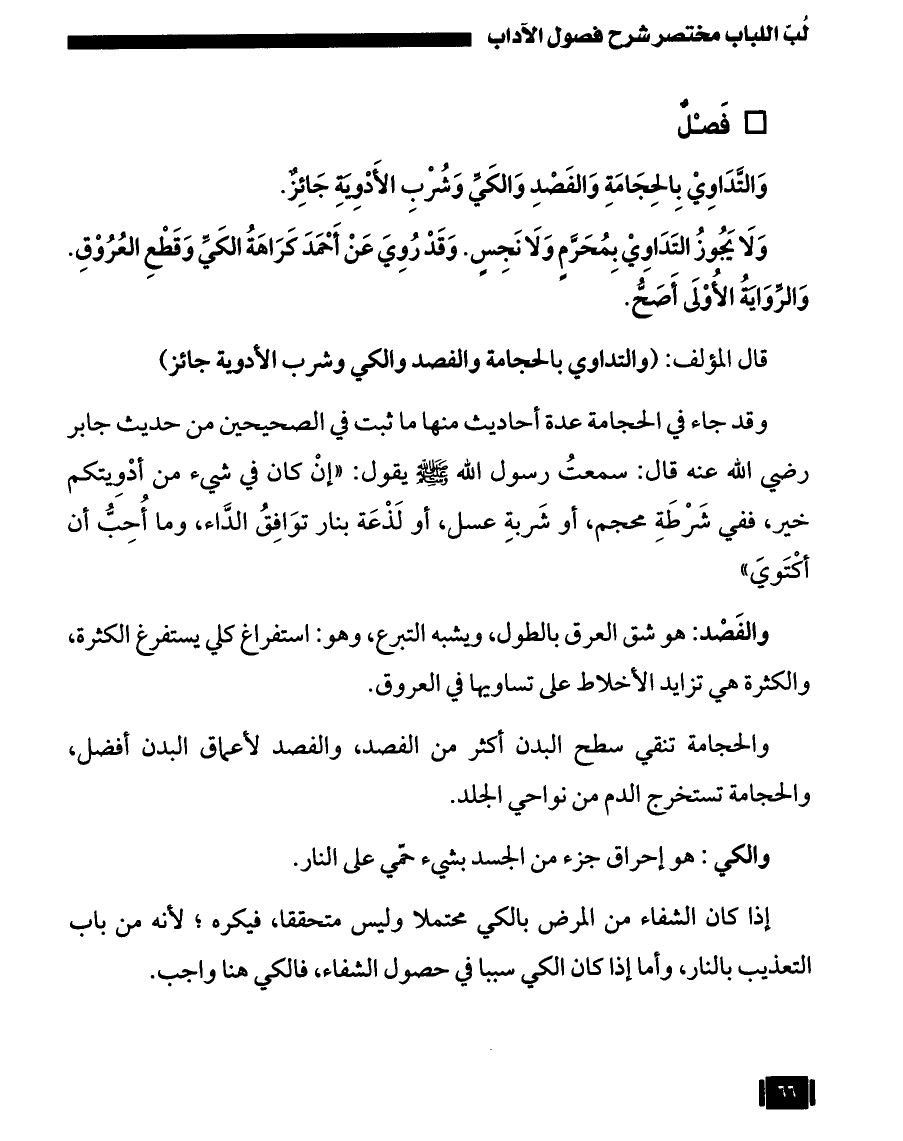 لُبّ اللباب مختصر شرح فصول الآداب
□ فَصْلٌ
وَالتَّدَاوِيْ بِالحِجَامَةِ وَالفَصْدِ وَالكَيِّ وَشُرْبِ الأَدْوِيَةِ جَائِزٌ.
وَلَا يَجُوزُ التَدَاوِيْ بِمُحَرَّمٍ وَلَا نَجِسٍ. وَقَدْ رُوِيَ عَنْ أَحْمَدَ كَرَاهَةُ الكَيِّ وَقَطْعِ العُرُوْقِ.
وَالرِّوَايَةُ الأُوْلَى أَصَحُّ.
قال المؤلف: (والتداوي بالحجامة والفصد والكي وشرب الأدوية جائز)
وقد جاء في الحجامة عدة أحاديث منها ما ثبت في الصحيحين من حديث جابر
رضي الله عنه قال: سمعتُ رسول الله ﷺ يقول: «إنْ كان في شيء من أدْوِيتكم
خير، ففي شَرْطَةِ محجم، أو شَربةِ عسل، أو لَذْعَة بنار توَافِقُ الدَّاء، وما أُحِبُّ أن
أكْتَويَ»
والفَصْد: هو شق العرق بالطول، ويشبه التبرع، وهو: استفراغ كلي يستفرغ الكثرة،
والكثرة هي تزايد الأخلاط على تساويها في العروق.
والحجامة تنقي سطح البدن أكثر من الفصد، والفصد لأعماق البدن أفضل،
والحجامة تستخرج الدم من نواحي الجلد.
والكي : هو إحراق جزء من الجسد بشيء حمّي على النار.
إذا كان الشفاء من المرض بالكي محتملا وليس متحققا، فيكره ؛ لأنه من باب
التعذيب بالنار، وأما إذا كان الكي سببا في حصول الشفاء، فالكي هنا واجب.
٦٦